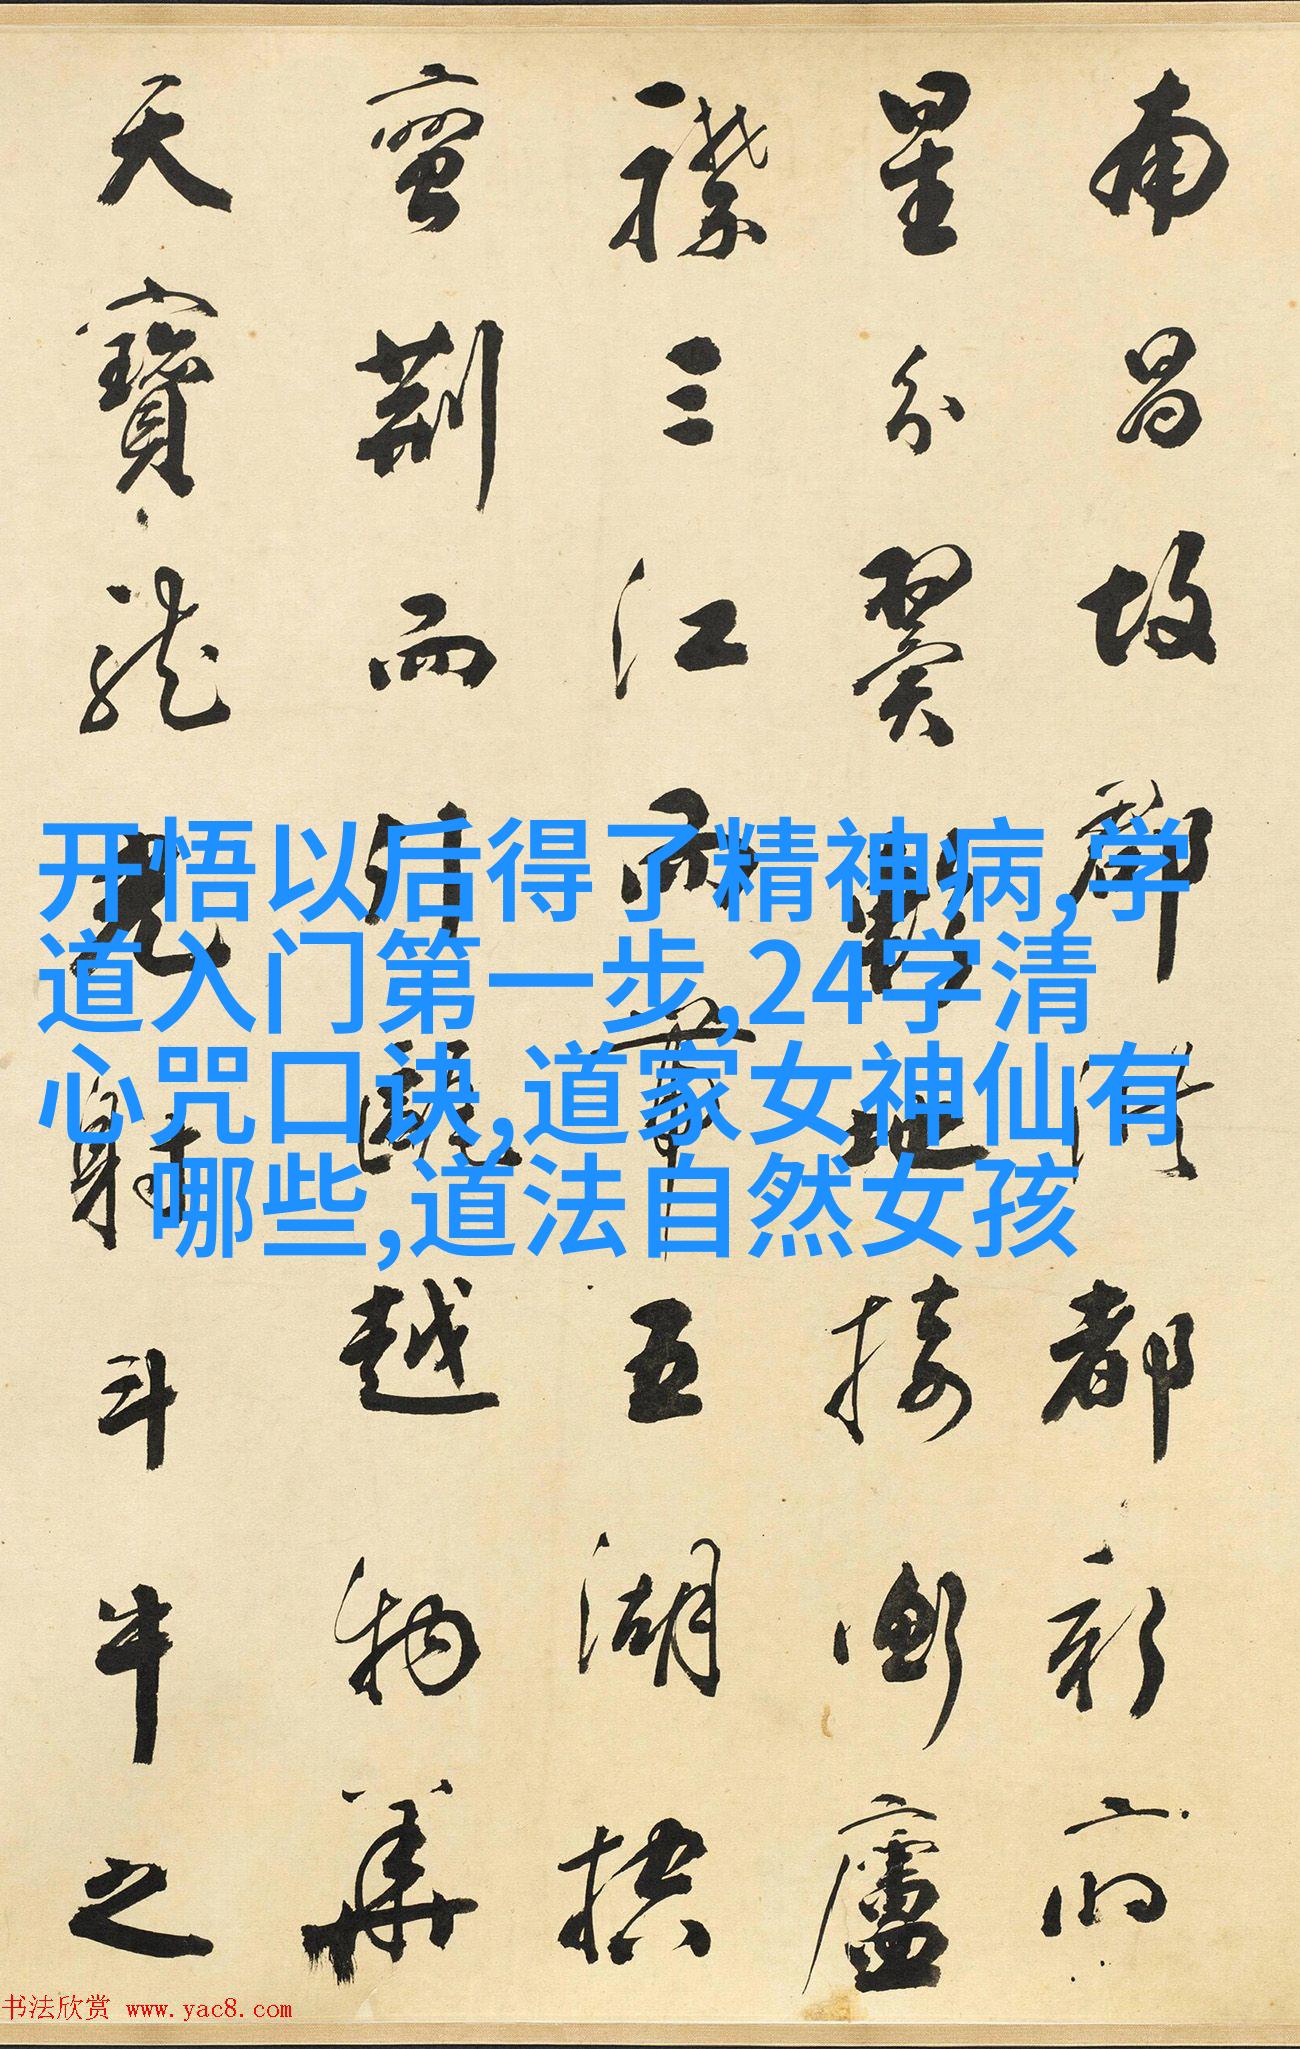 南昌故郡洪都新府
星分翼軫地接衡廬
襟三江而帶五湖控
蠻荊而引甌越物華
天寶龍光射斗牛之
开悟以后得了精神病,学
道入门第一步,24字清
心咒口诀,道家女神仙有
哪些,道法自然女孩
书法欣赏 www.yac8.com